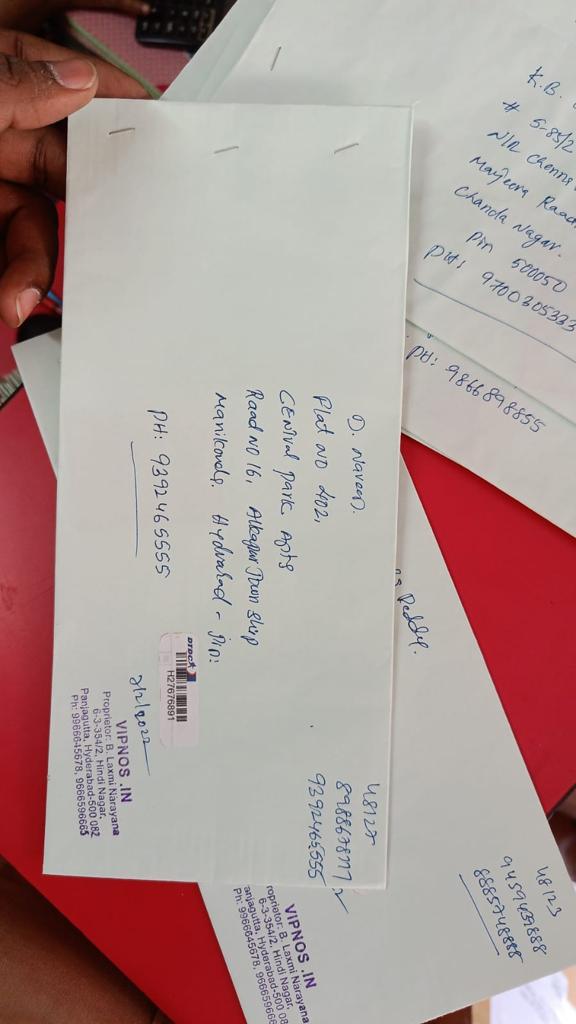 D. Naveen.
Plat NO 402,
Central Park Apts
Road NO 16, Alkapur Town ship
Manikonda, Hyderabad - Pin:
PH: 9392465555
DTDC
H27676891
2/12/2022
VIPNOS .IN
Proprietor: B. Laxmi Narayana
6-3-354/2, Hindi Nagar,
Panjagutta, Hyderabad-500 082
Ph: 9966645678, 9666596665
48127
9392465555
K.B.
# 5-85/2
Manjeera Road
Chanda Nagar.
Pin 500050
PH: 9700305333
PH: 9866898855
Reddy.
48123
9459459888
8885748888
VIPNOS .IN
roprietor: B. Laxmi Narayana
6-3-354/2, Hindi Nagar,
anjagutta, Hyderabad-500 08
Ph: 9966645678, 966659666